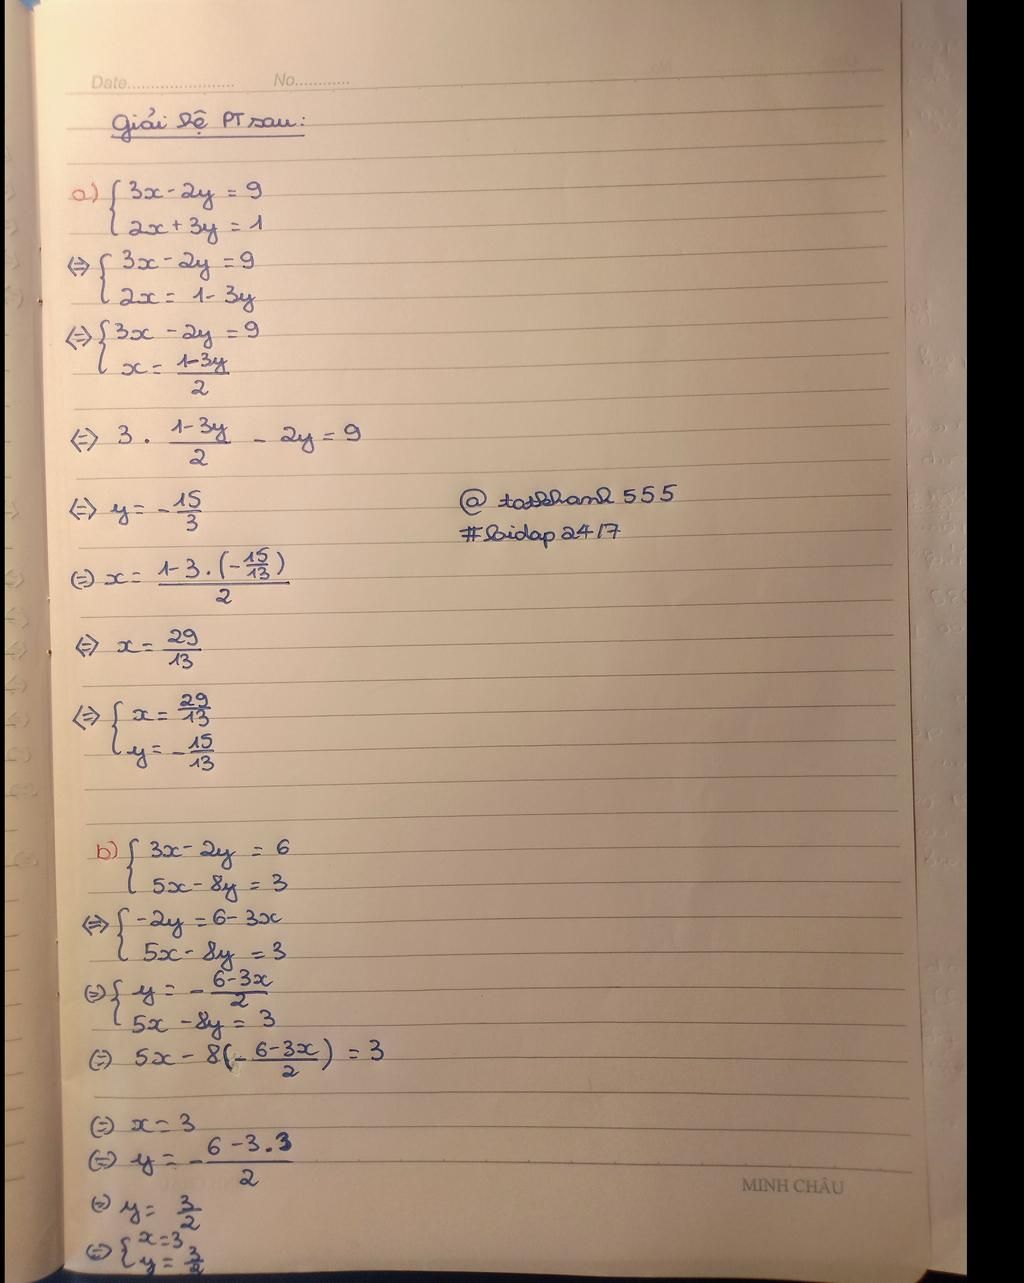 Date........................ No............
Giải hệ PT sau:
a) { 3x - 2y = 9
2x + 3y = 1
<=> { 3x - 2y = 9
2x = 1 - 3y
<=> { 3x - 2y = 9
x = (1-3y)/2
<=> 3 . (1-3y)/2 - 2y = 9
<=> y = -15/3
@ 555
#loidap24/7
(=) x = (1-3.(-15/13))/2
<=> x = 29/13
<=> { x = 29/13
y = -15/13
b) { 3x - 2y = 6
5x - 8y = 3
<=> { -2y = 6 - 3x
5x - 8y = 3
(=) { y = -(6-3x)/2
5x - 8y = 3
(=) 5x - 8(-(6-3x)/2) = 3
(=) x = 3
(=) y = -(6-3.3)/2
MINH CHÂU
(=) y = 3/2
(=) { x = 3
y = 3/2